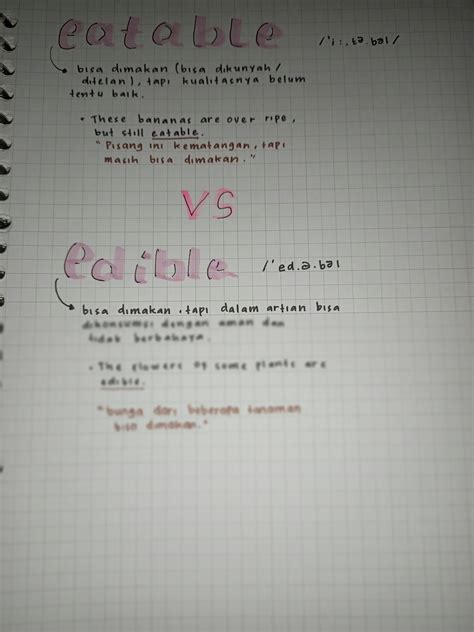 eatable /'i:.tə.bəl/
bisa dimakan (bisa dikunyah/
ditelan), tapi kualitasnya belum
tentu baik.
• These bananas are over ripe,
but still eatable.
"Pisang ini kematangan, tapi
masih bisa dimakan."
VS
edible /'ed.ə.bəl
bisa dimakan, tapi dalam artian bisa
dikonsumsi dengan aman dan
tidak berbahaya.
• The flowers of some plants are
edible.
"bunga dari beberapa tanaman
bisa dimakan."